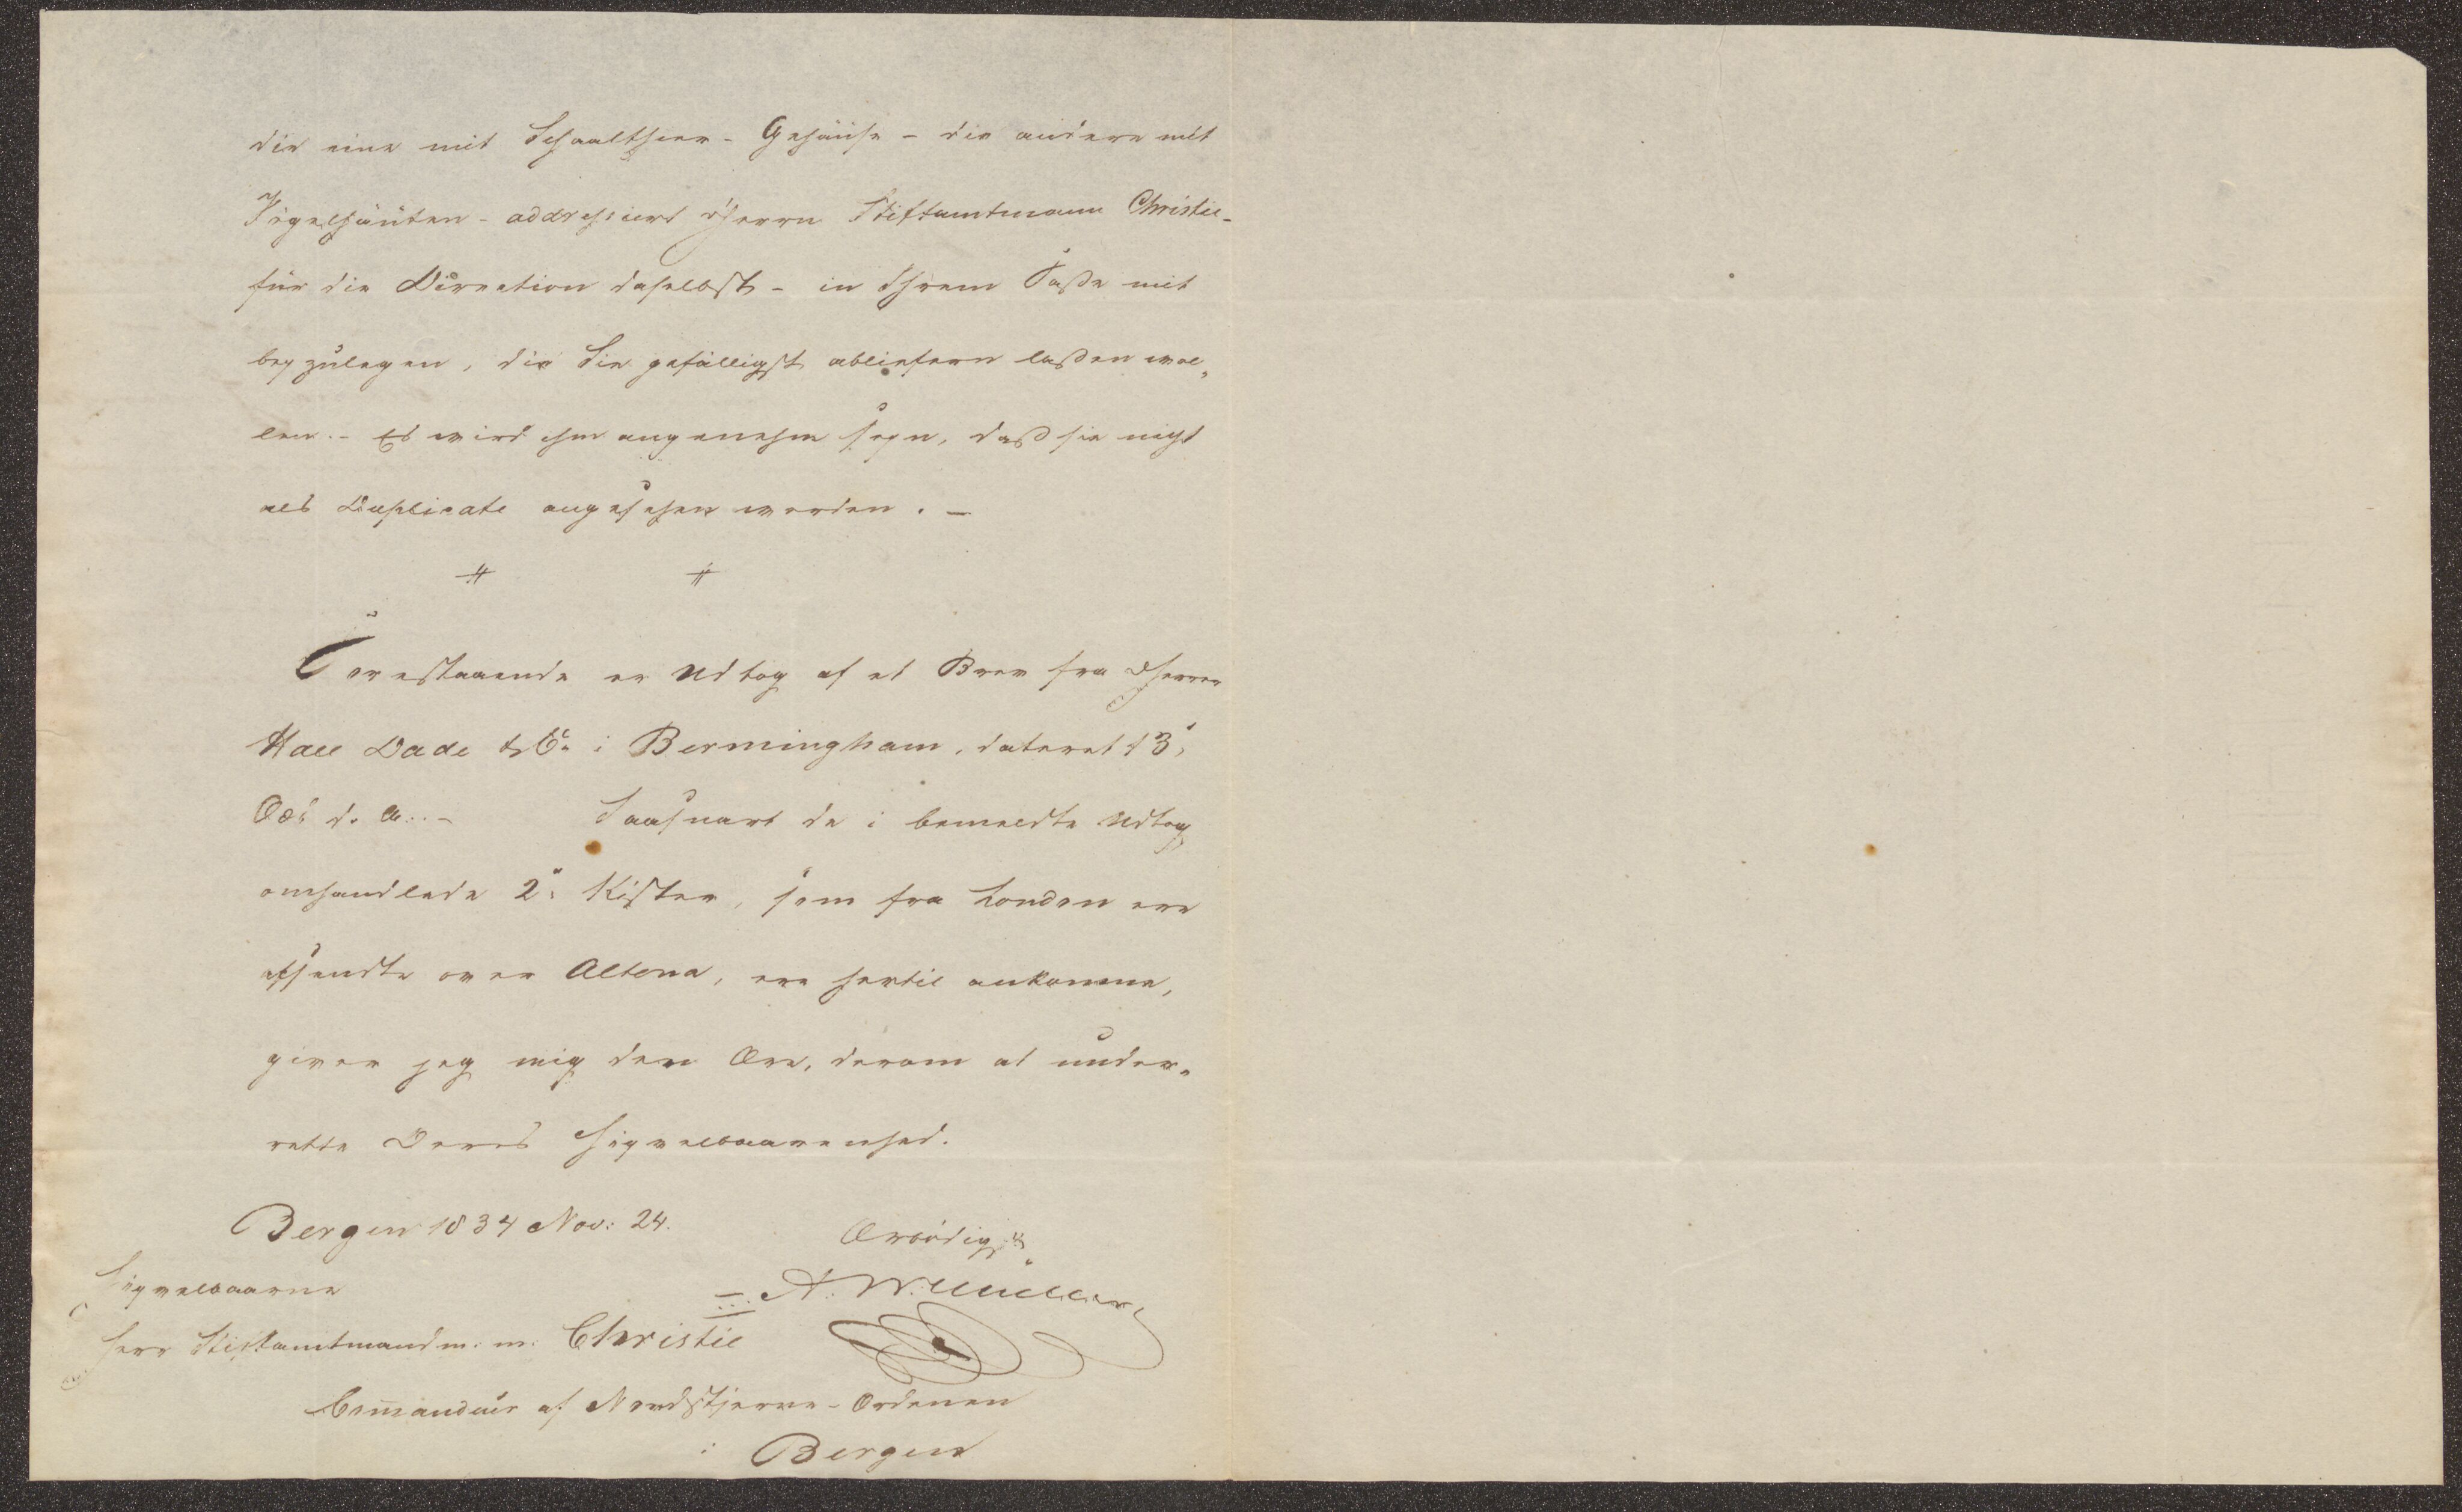 die eine mit Schaalthier-Gehäuse - die andere mit
Vögelhäuten - addressiert Herrn Stiftamtmann Christie -
für die Direction daselbst - in Ihrem Faße mit
beyzulegen, die Sie gefälligst abliefern laßen wol„
len. - Es wird ihm angenehm seyn, daß sie nicht
als Duplicate angesehen werden. -
Forestaaende er Udtog af et Brev fra Herrer
Hall Dade & Co i Bermingham, dateret 13,
Oct d. A.. - Saasnart de i bemeldte Udtog
omhandlede 2 Kister, som fra London ere
afsendte over Altona, ere hertil ankomne,
giver jeg mig den Ære, derom at under„
rette Deres Høyvelbaarenhed.
Bergen 1834 Nov: 24.
Ærbødigst
A. W. Müller
Høyvelbaarne
Herr Stiftamtmand m. m. Christie
Com̄andeur af Nordstjerne-Ordenen
i Bergen